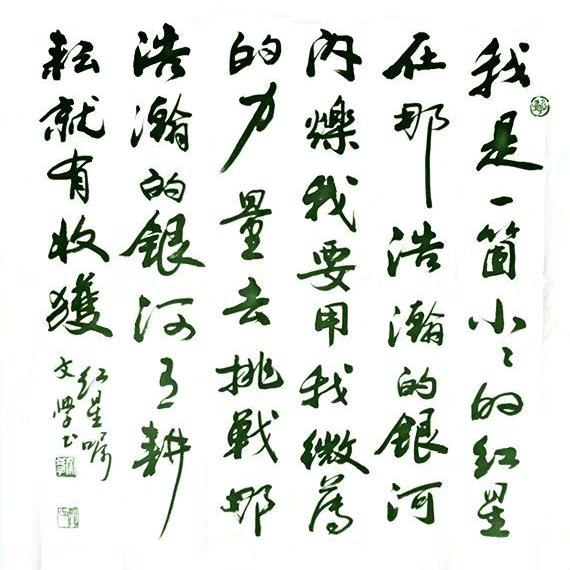 我是一箇小々的红星
在那浩瀚的銀河
内爍我要用我微薄
的力量去挑戰那
浩瀚的銀河有耕
耘就有收獲
红星嘱
文学书